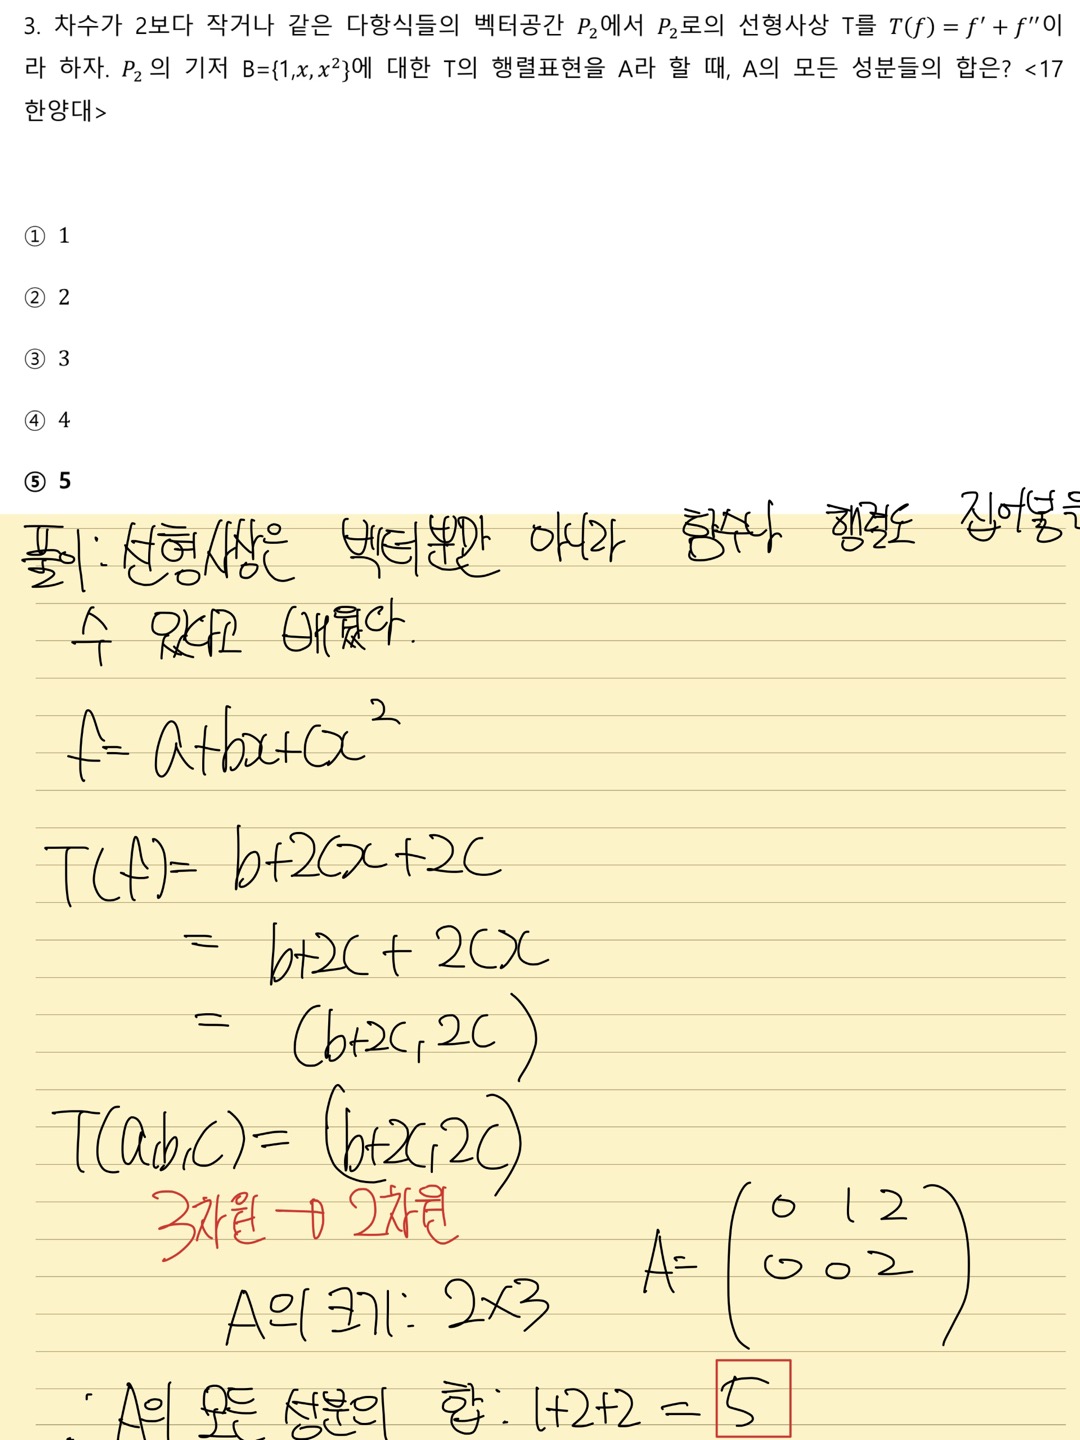 3. 차수가 2보다 작거나 같은 다항식들의 벡터공간 P₂에서 P₂로의 선형사상 T를 T(f) = f′ + f′′이
라 하자. P₂ 의 기저 B={1,x, x²}에 대한 T의 행렬표현을 A라 할 때, A의 모든 성분들의 합은? <17
한양대>
① 1
② 2
③ 3
④ 4
⑤ 5
풀이: 선형사상은 벡터뿐만 아니라 함수나 행렬도 집어넣을
수 있다고 배웠다.
f= a+bx+cx²
T(f)= b+2cx+2c
= b+2c+ 2cx
= (b+2c, 2c)
T(a,b,c)= (b+2c, 2c)
3차원 → 2차원
A의 크기: 2×3
A= ( 0 1 2
0 0 2 )
∴ A의 모든 성분의 합: 1+2+2 = 5